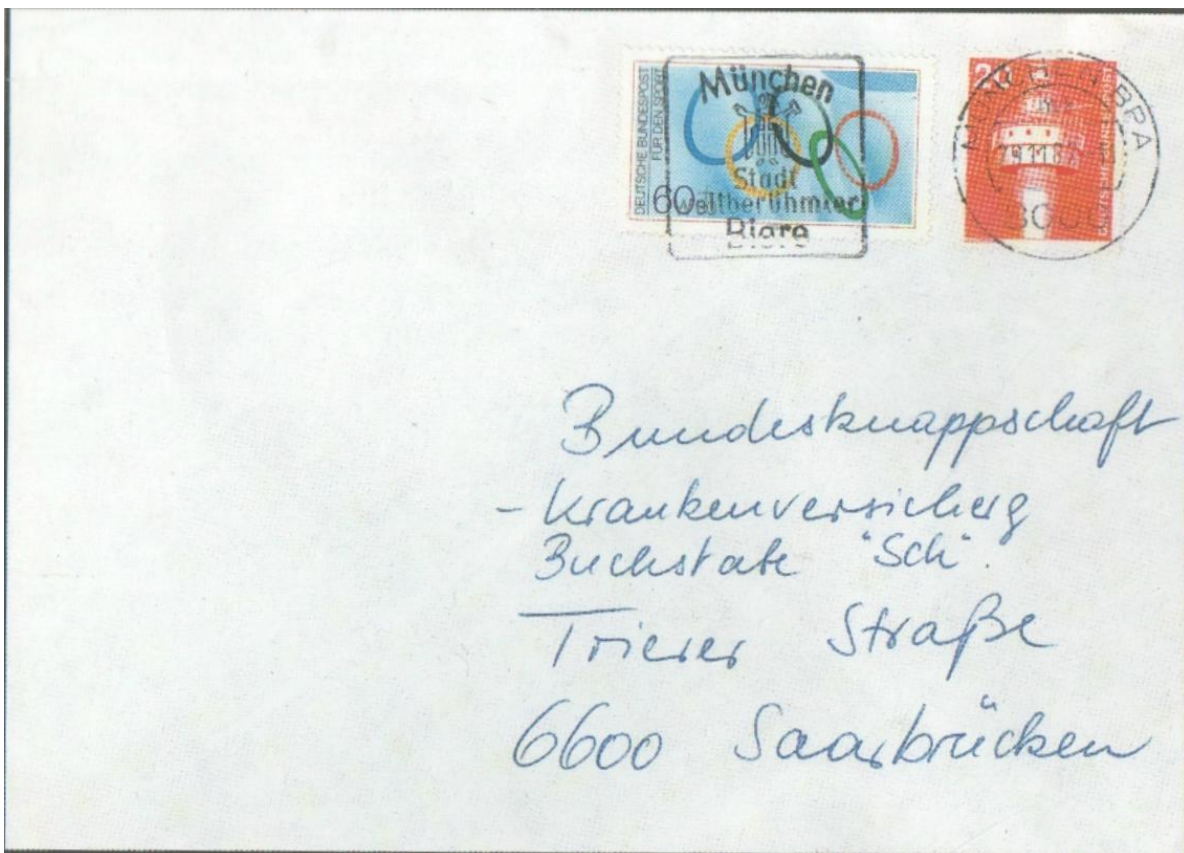 DEUTSCHE BUNDESPOST
FÜR DEN SPORT
60
München
Stadt
weltberühmter
Biere
20
MÜNCHEN BPA
Bundesknappschaft
- Krankenversicherg
Buchstabe "Sch".
Trierer Straße
6600 Saarbrücken